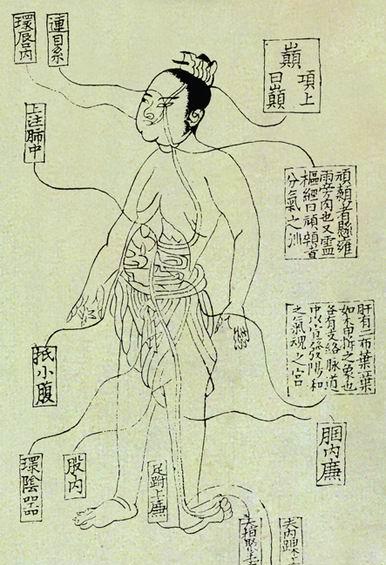 連目系
環唇內
上注肺中
巔
項上
曰巔
頏顙者有懸雍
兩旁肉也又靈
樞經曰頏顙者
分氣之
肝有二布葉葉
如木甲拆之象也
各有支絡脈道
中以宣發陽和
之氣魂之宮
抵小腹
膕內廉
環陰器
股內
足跗上廉
大指聚毛
去內踝上